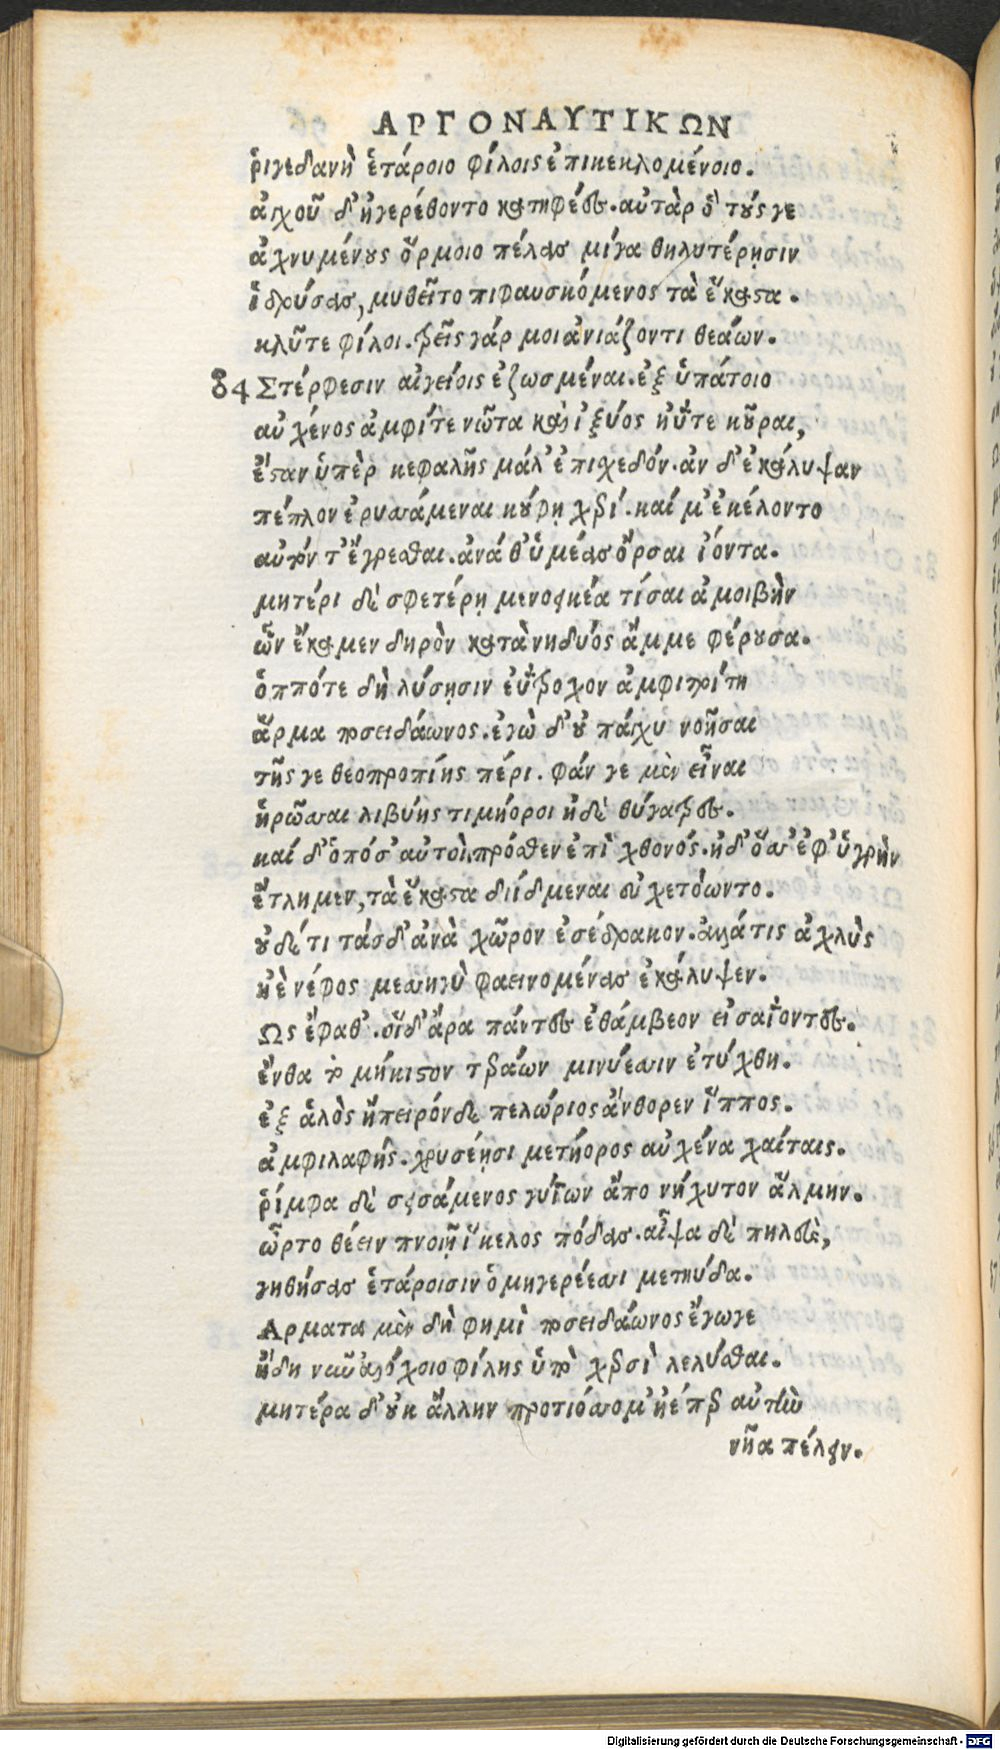 ΑΡΓΟΝΑΥΤΙΚΩΝ
ῥιγεδανὴ ἑτάροιο φίλοις ἐπικεκλομένοιο.
ἀιχοῦ δ' ἠγερέθοντο κατηφέες. αὐτὰρ ὅ τούς γε
ἀχνυμένους ὅρμοιο πέλας μίγα θηλυτέρῃσιν
ἱδρύσας, μυθεῖτο πιφαυσκόμενος τὰ ἕκαστα.
κλῦτε φίλοι. τρεῖς γάρ μοι ἀνιάζοντι θεάων.
84 Στέρφεσιν αἰγείοις ἐζωσμέναι. ἐξ ὑπάτοιο
αὐχένος ἀμφίτε νῶτα καὶ ἰξύος ἠΰτε κοῦραι,
ἔσταν ὑπὲρ κεφαλῆς μάλ' ἐπιχεδόν. ἀν δ' ἐκάλυψαν
πέπλον ἐρυσσάμεναι κούφῃ χερί. καί μ' ἐκέλοντο
αὐτόν τ' ἔγρεσθαι. ἀνά θ' ὑμέας ὄρσαι ἰόντα.
μητέρι δὲ σφετέρῃ μενοεικέα τίσαι ἀμοιβὴν
ὧν ἔκαμεν δηρὸν κατὰ νηδύος ἄμμε φέρουσα.
ὁππότε δὴ λύσῃσιν ἐΰτροχον ἀμφιτρίτη
ἅρμα ποσειδάωνος. ἐγὼ δ' οὐ πάγχυ νοῆσαι
τῆς γε θεοπροπίης πέρι. φάν γε μὲν εἶναι
ἡρῶσσαι λιβύης τιμήοροι ἠδὲ θύγατρες.
καί δ' ὁπόσ' αὐτοὶ πρόσθεν ἐπὶ χθονός. ἠδ' ὅσσ' ἐφ' ὑγρὴν
ἔτλημεν, τὰ ἕκαστα διίδμεναι εὐχετόωντο.
οὐδέ τι τάσδ' ἀνὰ χῶρον ἐσέδρακον. ἀλλάτις ἀχλὺς
ἠὲ νέφος μεσσηγὺ φαεινομένας ἐκάλυψεν.
Ως ἔφαθ'. οἱ δ' ἄρα πάντες ἐθάμβεον εἰσαΐοντες.
ἔνθα τὸ μήκιστον τεράων μινύεσσιν ἐτύχθη.
ἐξ ἁλὸς ἤπειρόνδε πελώριος ἄνθορεν ἵππος.
ἀμφιλαφής. χρυσέῃσι μετήορος αὐχένα χαίταις.
ῥίμφα δὲ σεισάμενος γυίων ἄπο νήχυτον ἅλμην.
ὦρτο θέειν πνοιῇ ἴκελος πόδας. αἶψα δὲ πηλεὺς,
γηθήσας ἑτάροισιν ὁμηγερέεσσι μετηύδα.
Αρματα μὲν δὴ φημὶ ποσειδάωνος ἔγωγε
ἤδη νῦν ἀλόχοιο φίλης ὑπὸ χερσὶ λελύσθαι.
μητέρα δ' οὐκ ἄλλην προτιόσσομ' ἠέ περ αὐτὴν
νῆα πέλειν.
Digitalisierung gefördert durch die Deutsche Forschungsgemeinschaft - DFG